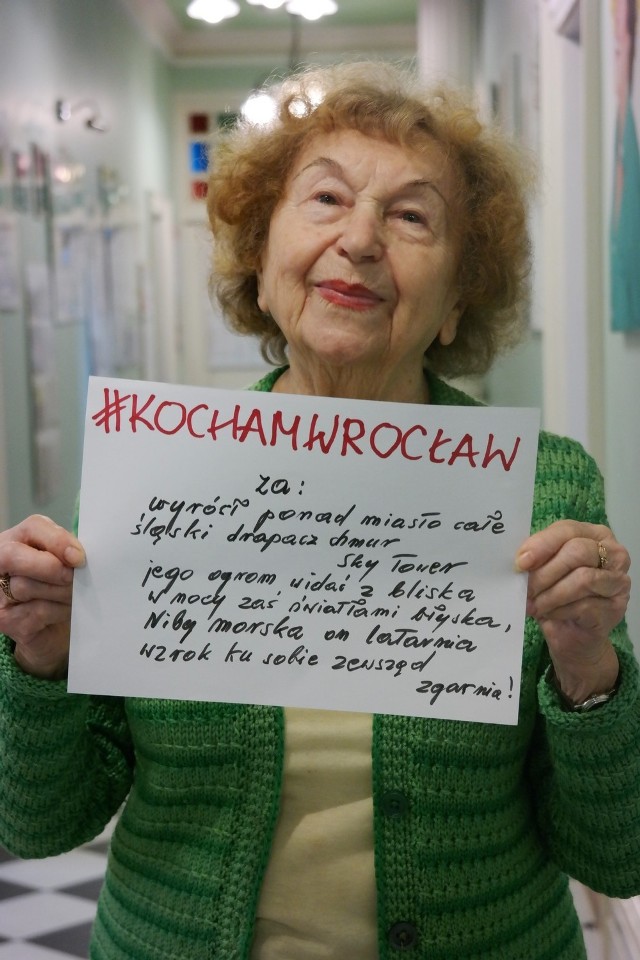 #KOCHAMWROCŁAW
za:
wyrócił ponad miasto całe
śląski drapacz chmur
Sky Tower
jego ogrom widać z bliska
w nocy zaś światłami błyska,
Niby morska on latarnia
wzrok ku sobie zewsząd
zgarnia!